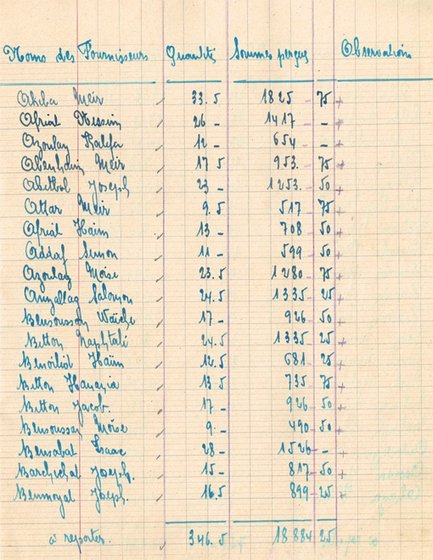 Noms des Fournisseurs Quantité Sommes perçues Observation
Akiba Meir 33.5 1825 75
Afriat Nessim 26 - 1417 -
Azoulay Kalifa 12 - 654 -
Obenhaim Meir 17 5 953. 75
Abitbol Joseph 23 - 1253. 50
Attar Meir 9.5 517 75
Afriat Haim 13 - 708 50
Addaf Simon 11 - 599 50
Azoulay Moïse 23.5 1280 75
Amzallag Salomon 24.5 1335 25
Bensoussan Waïche 17 - 926 50
Bitton Naphtali 24.5 1335 25
Benoiliol Haïm 12.5 681 25
Bitton Hanania 13 5 735 75
Bitton Jacob. 17 - 926 50
Bensoussan Moïse 9 - 490 50
Bensabat Isaac 28 - 1526 -
Barchichat Joseph. 15 - 817 50
Benmoyal Joseph. 16.5 899 25
à reporter. 346.5 18884 25